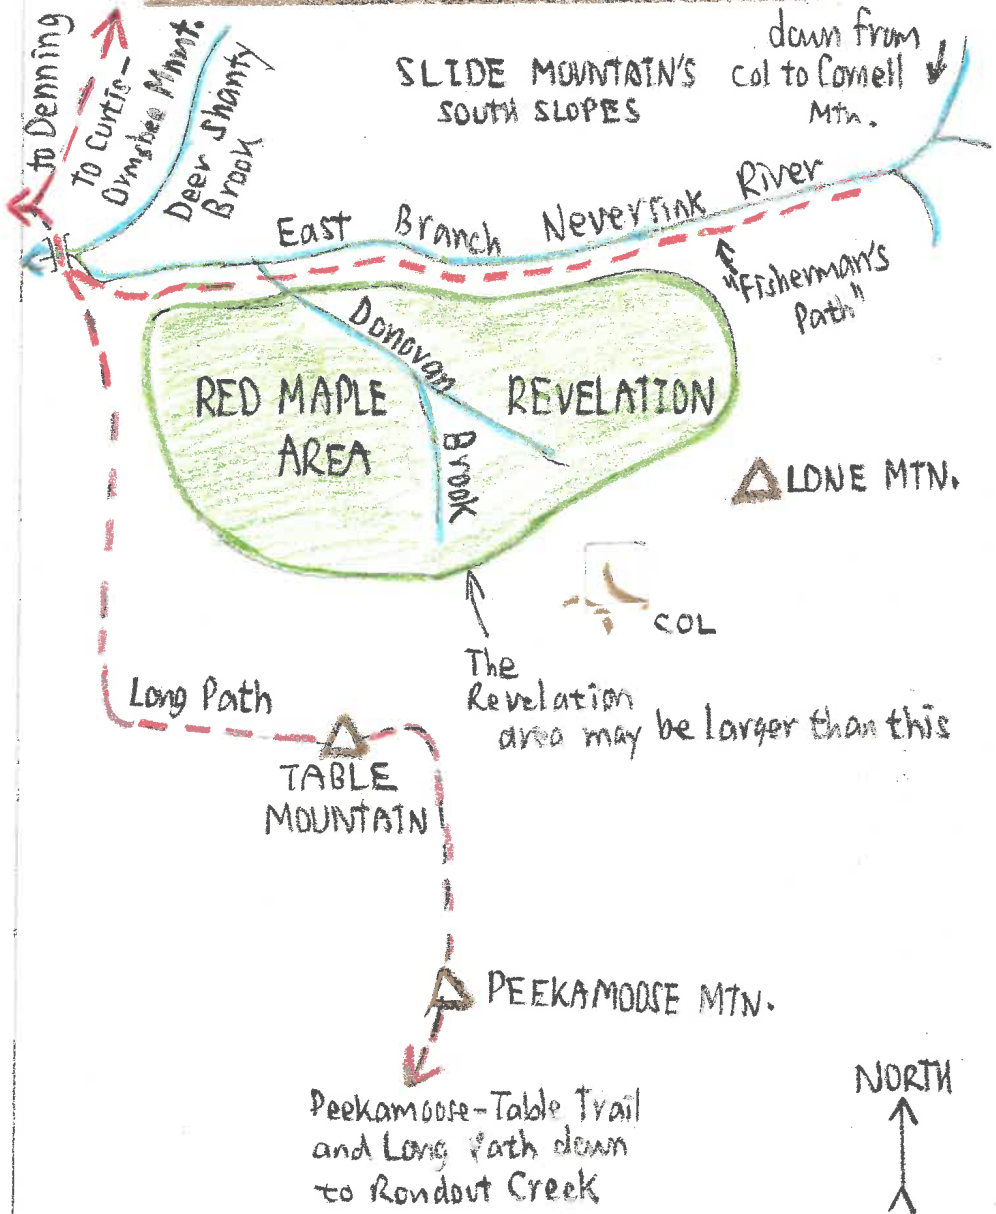 to Denning
to Curtis-
Ormsbee Mnmt.
Deer Shanty
Brook
SLIDE MOUNTAIN'S
SOUTH SLOPES
down from
col to Cornell
Mtn.
East Branch Neversink River
"Fisherman's
Path"
Donovan
Brook
RED MAPLE
AREA
REVELATION
LONE MTN.
COL
The
Revelation
area may be larger than this
Long Path
TABLE
MOUNTAIN
PEEKAMOOSE MTN.
Peekamoose-Table Trail
and Long Path down
to Rondout Creek
NORTH